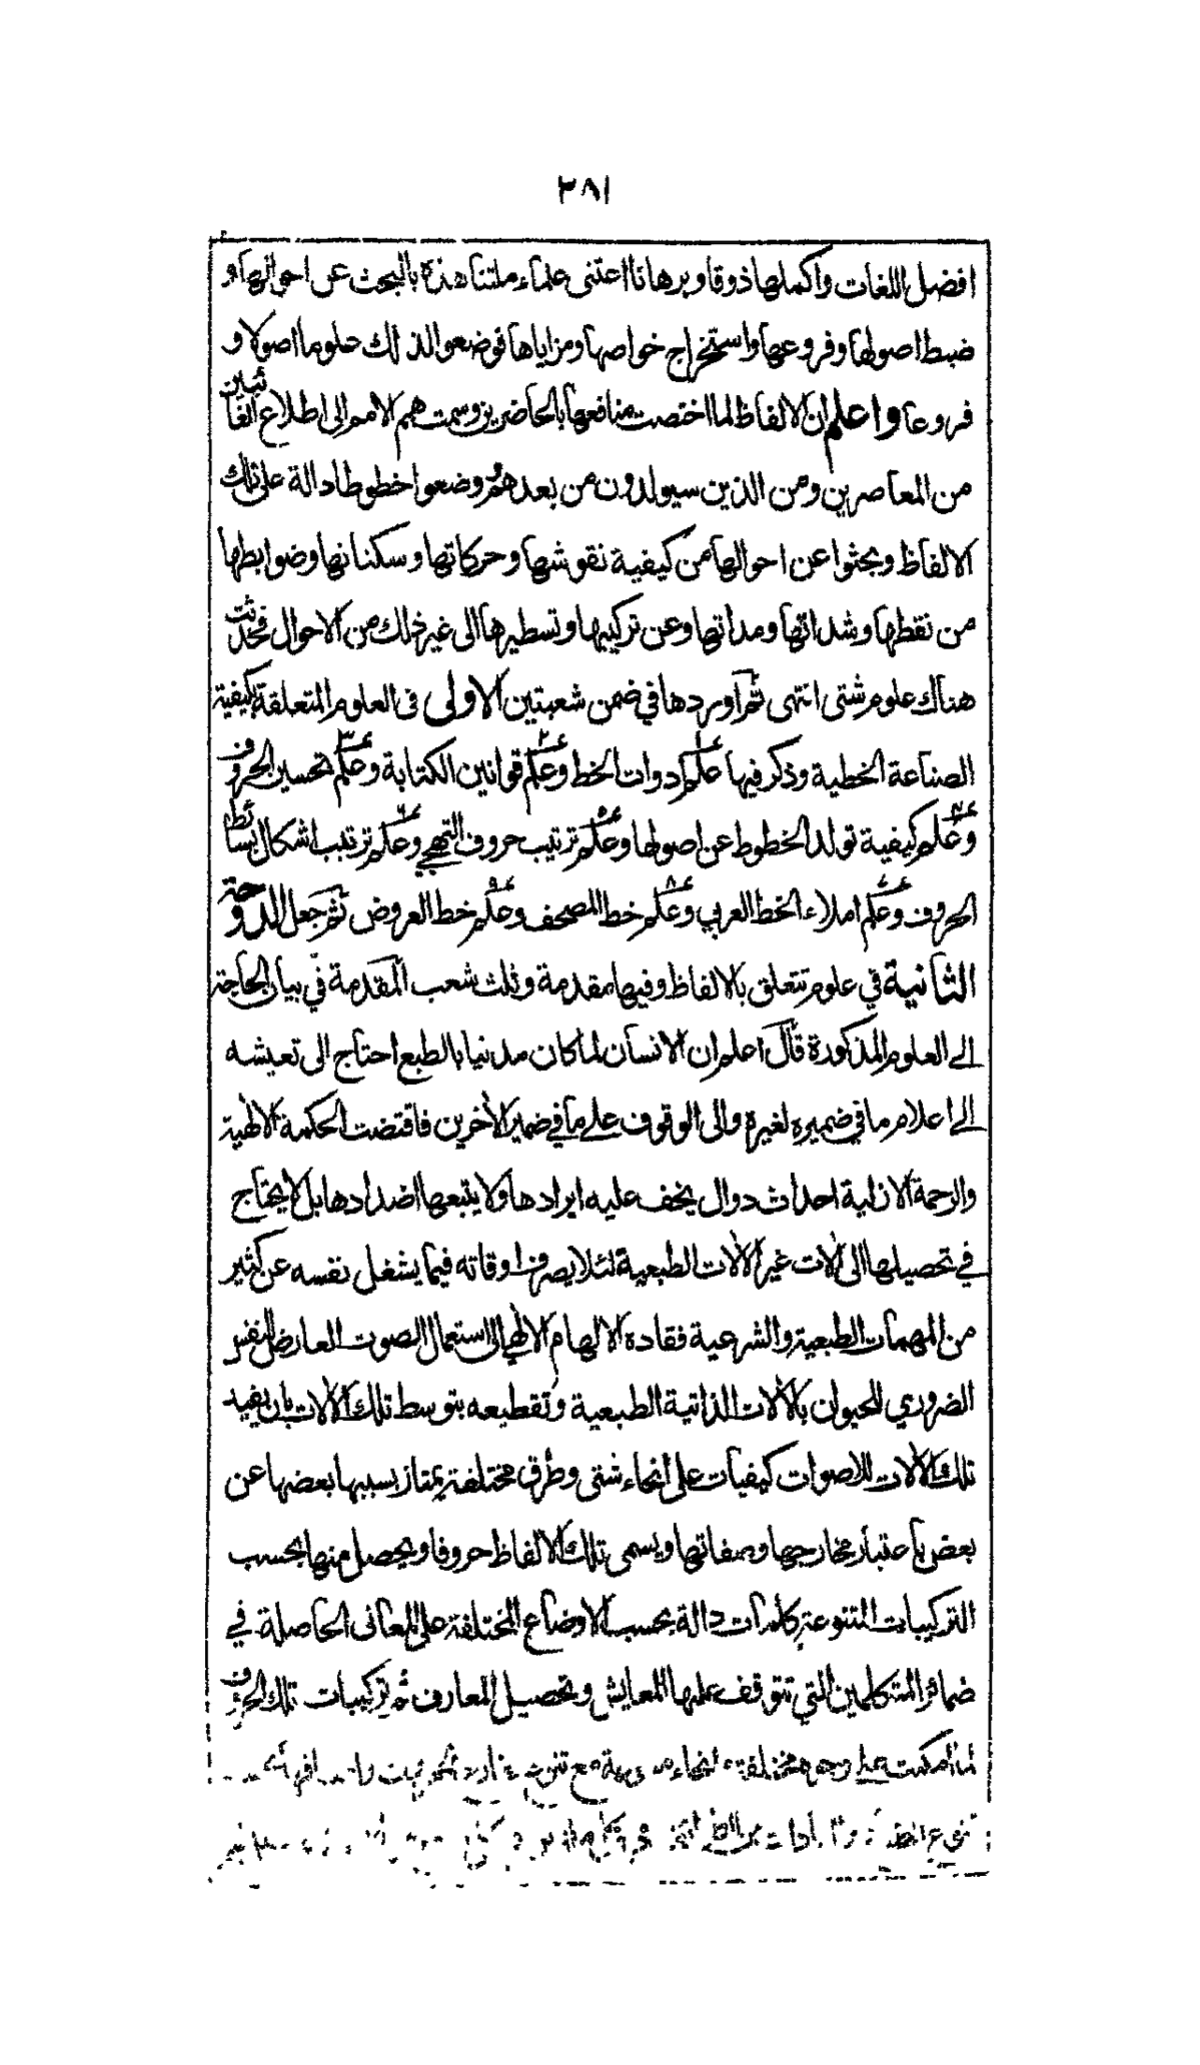 ٣٨١
افضل اللغات واكملها ذوقا وبرهانا اعتنى علماء ملتنا هذه بالبحث عن احوالها و
ضبط اصولها وفروعها واستخراج خواصها ومزاياها فوضعوا لذلك علوما اصولا و
فروعا واعلم ان الالفاظ لما اختصت منافعها بالحاضرين وسمت همم الامم الى اطلاع الغائبين
من المعاصرين ومن الذين سيولدون من بعدهم وضعوا خطوطا دالة على تلك
الالفاظ وبحثوا عن احوالها من كيفية نقوشها وحركاتها وسكناتها وضوابطها
من نقطها وشداتها ومداتها وعن تركيبها وتسطيرها الى غير ذلك من الاحوال فحدثت
هناك علوم شتى انتهى ثم اوردها في ضمن شعبتين الاولى فى العلوم المتعلقة بكيفية
الصناعة الخطية وذكر فيها علم ادوات الخط وعلم قوانين الكتابة وعلم تحسين الحروف
وعلم كيفية تولد الخطوط عن اصولها وعلم ترتيب حروف التهجي وعلم ترتيب اشكال بسائط
الحروف وعلم املاء الخط العربي وعلم خط المصحف وعلم خط العروض ثم جعل الدوحة
الثانية في علوم تتعلق بالالفاظ وفيها مقدمة وثلث شعب المقدمة في بيان الحاجة
الى العلوم المذكورة قال اعلم ان الانسان لما كان مدنيا بالطبع احتاج الى تعيشه
الى اعلام ما في ضميره لغيره والى الوقوف على ما في ضمير الأخرين فاقتضت الحكمة الالهية
والرحمة الازلية احداث دوال يخف عليه ايرادها ولا يتبعها اضدادها بل لا يحتاج
في تحصيلها الى الات غير الالات الطبعية لئلا يصرف اوقاته فيما يشغل نفسه عن كثير
من المهمات الطبعية والشرعية فقاده الالهام الالهي الى استعمال الصوت العارض للنفس
الضروري للحيوان بالالات الذاتية الطبعية وتقطيعه بتوسط تلك الالات بان يفيد
تلك الالات للاصوات كيفيات على انحاء شتى وطرق مختلفة يمتاز بسببها بعضها عن
بعض باعتبار مخارجها وصفاتها ويسمى تلك الالفاظ حروفا ويحصل منها بحسب
التركيبات المتنوعة كلمات دالة بحسب الاوضاع المختلفة على المعانى الحاصلة في
ضمائر المتكلمين التي تتوقف عليها المعايش وتحصيل المعارف ثم تركيبات تلك الحروف
لما امكنت على وجوه مختلفة وانحاء